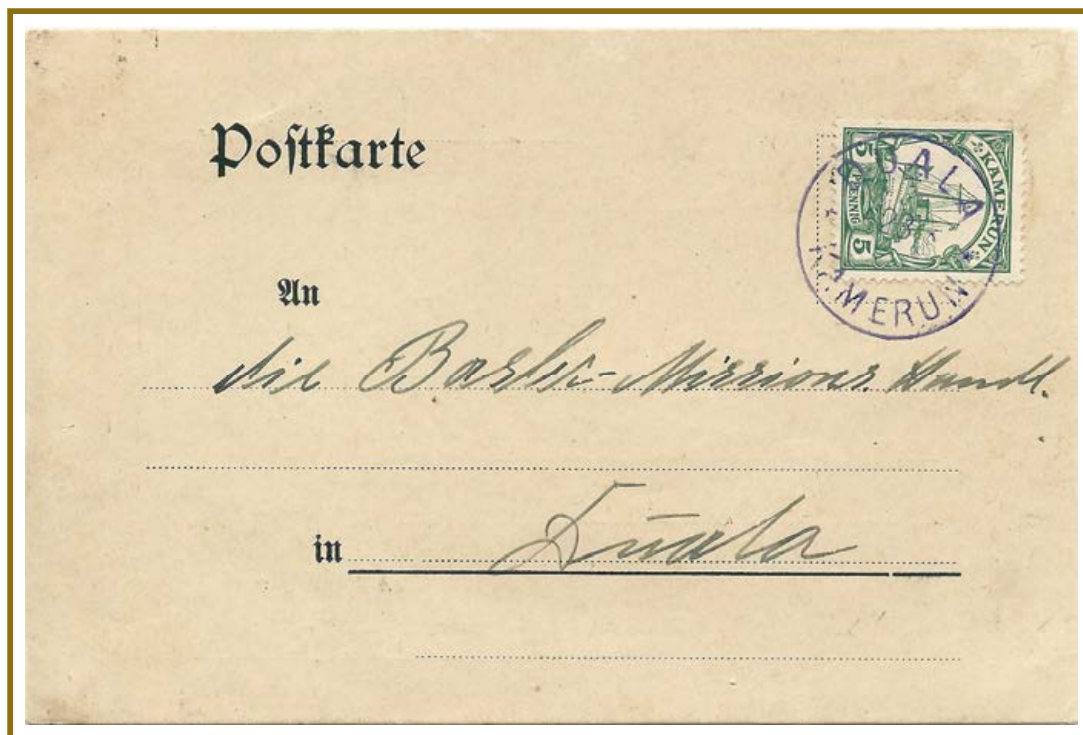 Postkarte
KAMERUN
5 PFENNIG 5
DUALA
KAMERUN
An
die Basler-Missions Handl.
in Duala